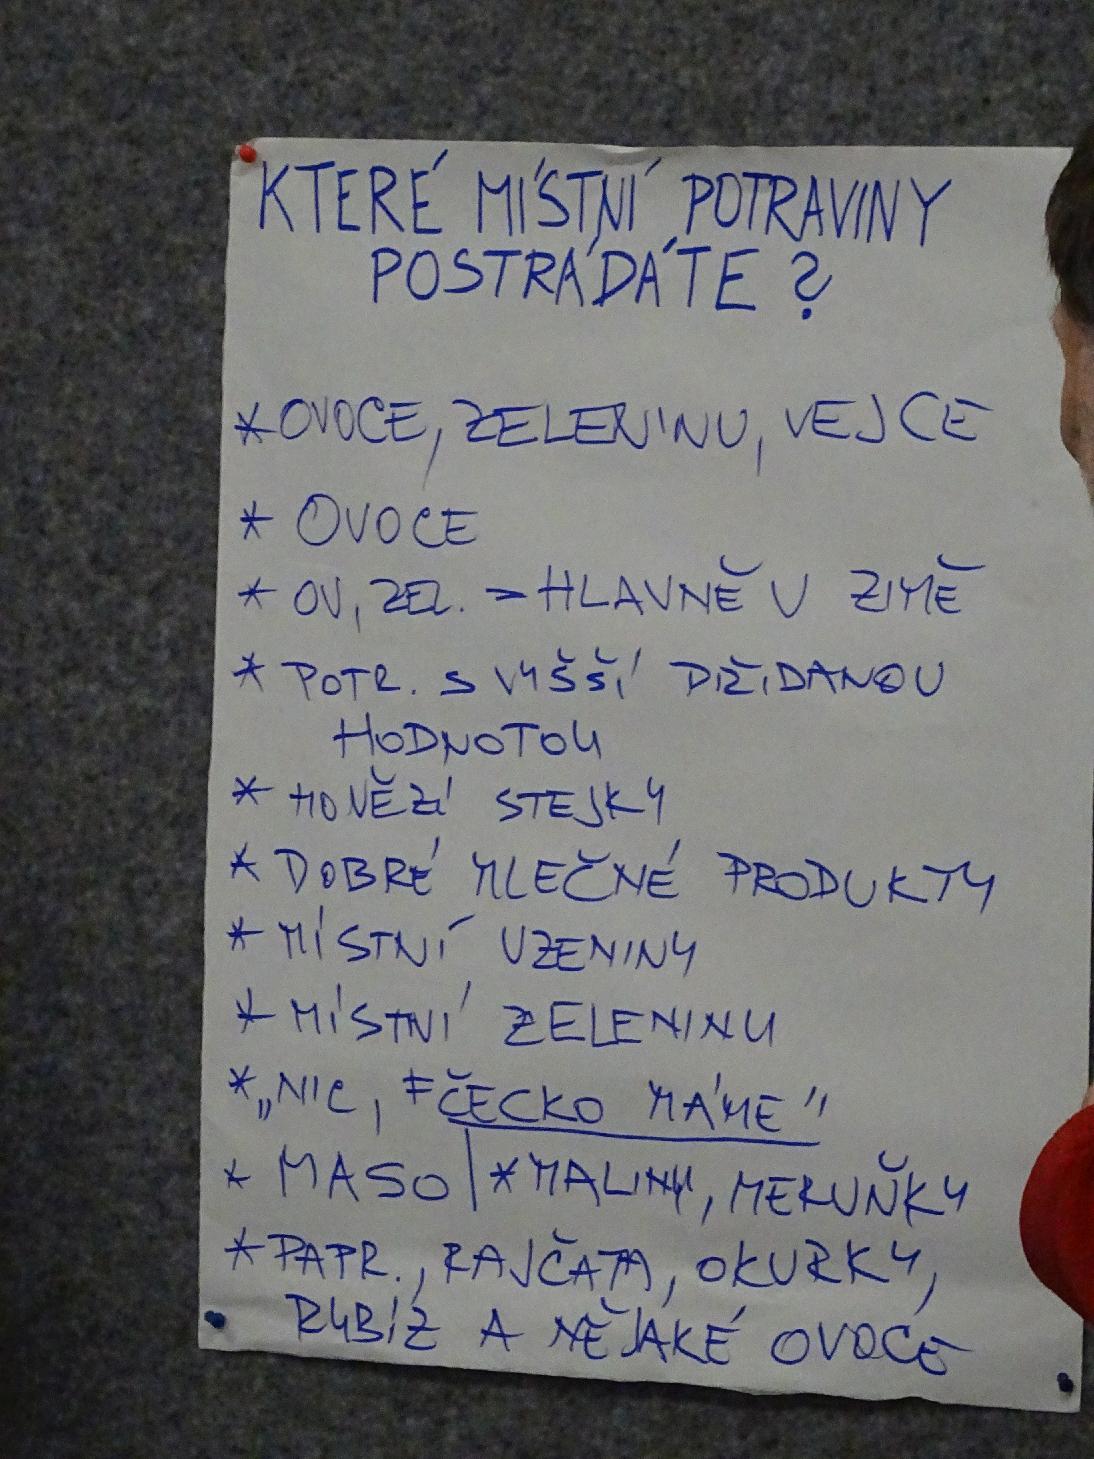 KTERÉ MÍSTNÍ POTRAVINY
POSTRÁDÁTE ?
* OVOCE, ZELENINU, VEJCE
* OVOCE
* OV, ZEL. - HLAVNĚ V ZIMĚ
* POTR. S VYŠŠÍ PŘIDANOU
HODNOTOU
* HOVĚZÍ STEJKY
* DOBRÉ MLEČNÉ PRODUKTY
* MÍSTNÍ UZENINY
* MÍSTNÍ ZELENINU
* „NIC, FČECKO MÁME"
* MASO | * MALINY, MERUŇKY
* PAPR., RAJČATA, OKURKY,
RYBÍZ A NĚJAKÉ OVOCE